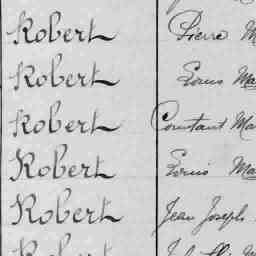 Robert Pierre M
Robert Louis Ma
Robert Constant Ma
Robert Louis Ma
Robert Jean Joseph
Robert